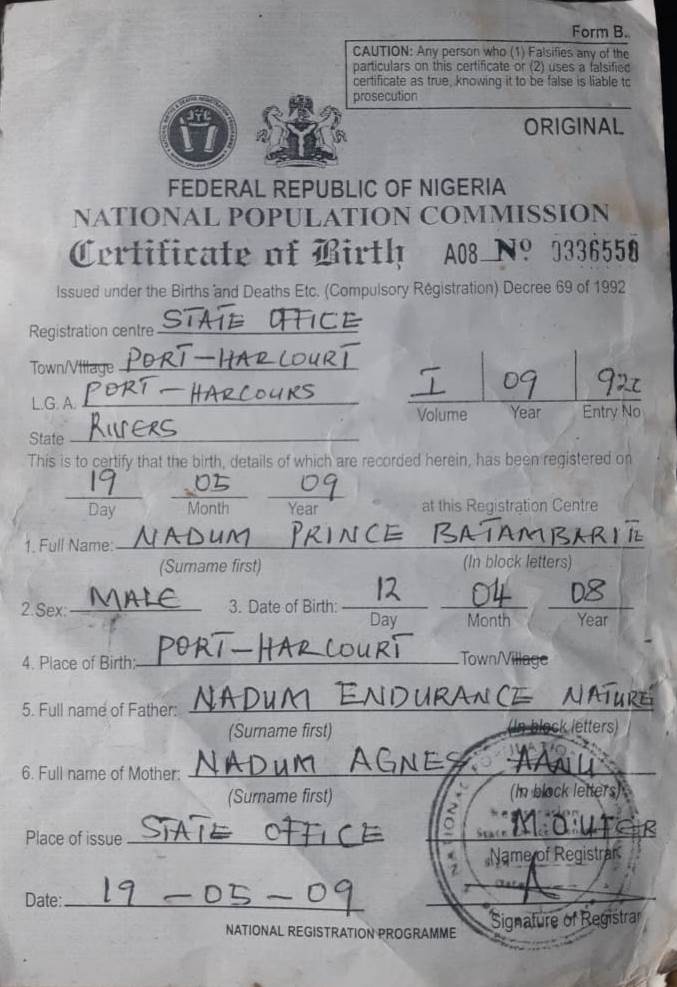 Form B.
CAUTION: Any person who (1) Falsifies any of the
particulars on this certificate or (2) uses a falsified
certificate as true, knowing it to be false is liable to
prosecution
ORIGINAL
FEDERAL REPUBLIC OF NIGERIA
NATIONAL POPULATION COMMISSION
Certificate of Birth A08 Nº 0336558
Issued under the Births and Deaths Etc. (Compulsory Registration) Decree 69 of 1992
Registration centre STATE OFFICE
Town/Village PORT-HARCOURT
L.G.A. PORT-HARCOURS
I 09
Volume Year Entry No
State RIVERS
This is to certify that the birth, details of which are recorded herein, has been registered on
19 05 09
Day Month Year at this Registration Centre
1. Full Name: NADUM PRINCE BATAMBARITE
(Surname first) (In block letters)
2. Sex: MALE 3. Date of Birth: 12 04 08
Day Month Year
4. Place of Birth: PORT-HARCOURT Town/Village
5. Full name of Father: NADUM ENDURANCE NATURE
(Surname first) (In block letters)
6. Full name of Mother: NADUM AGNES
(Surname first) (In block letters)
Place of issue STATE OFFICE
Name of Registrar
Date: 19-05-09
Signature of Registrar
NATIONAL REGISTRATION PROGRAMME